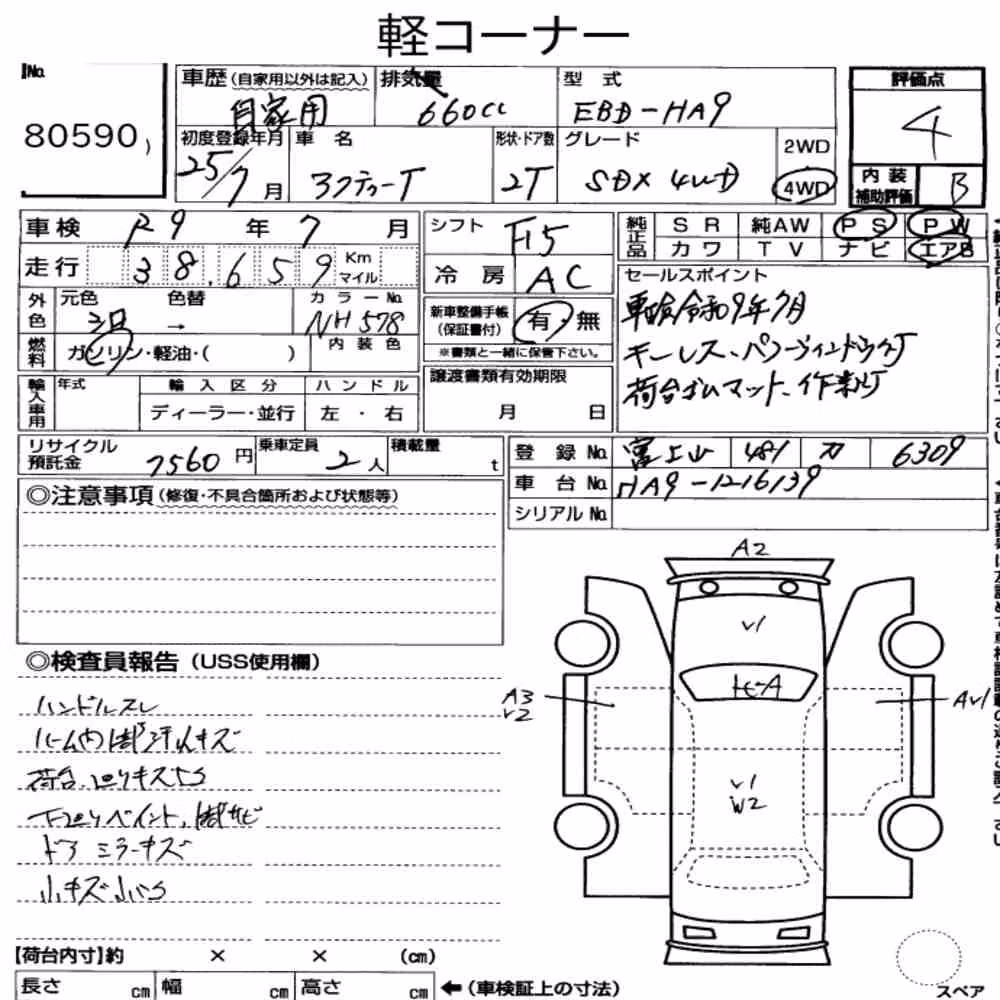 軽コーナー
No.
80590 )
車歴 (自家用以外は記入)
自家用
排気量
660cc
型式
EBD-HA9
評価点
4
内装補助評価
B
初度登録年月
25/7月
車名
アクティーT
形状・ドア数
2T
グレード
SDX 4WD
2WD
4WD
車検 R9年 7月
走行 38,659 Km マイル
外色 元色 色替 カラーNo.
シロ → NH578
燃料 ガソリン・軽油・( ) 内装色
輸入車用 年式 輸入区分 ハンドル
ディーラー・並行 左・右
シフト F5
冷房 AC
新車整備手帳(保証書付) 有・無
※書類と一緒に保管下さい。
譲渡書類有効期限
月 日
純正品 SR 純AW PS PW
カワ TV ナビ エアB
セールスポイント
車検令和9年7月
キーレス、パワーウィンドウ付
荷台ゴムマット、作業灯
リサイクル預託金 7560円 乗車定員 2人 積載量 t
登録No. 富士山 481 カ 6309
車台No. HA9-1216139
シリアルNo.
◎注意事項(修復・不具合箇所および状態等)
◎検査員報告(USS使用欄)
ハンドルスレ
ルーム内部汚レキズ
荷台、廻りキズ凹S
下廻りペイント、1部サビ
ドアミラーキズ
小キズ小凹S
A2
V1
トビ-A
A3
V2
AV1
V1
W2
【荷台内寸】約 × × (cm)
長さ cm 幅 cm 高さ cm ←(車検証上の寸法)
スペア